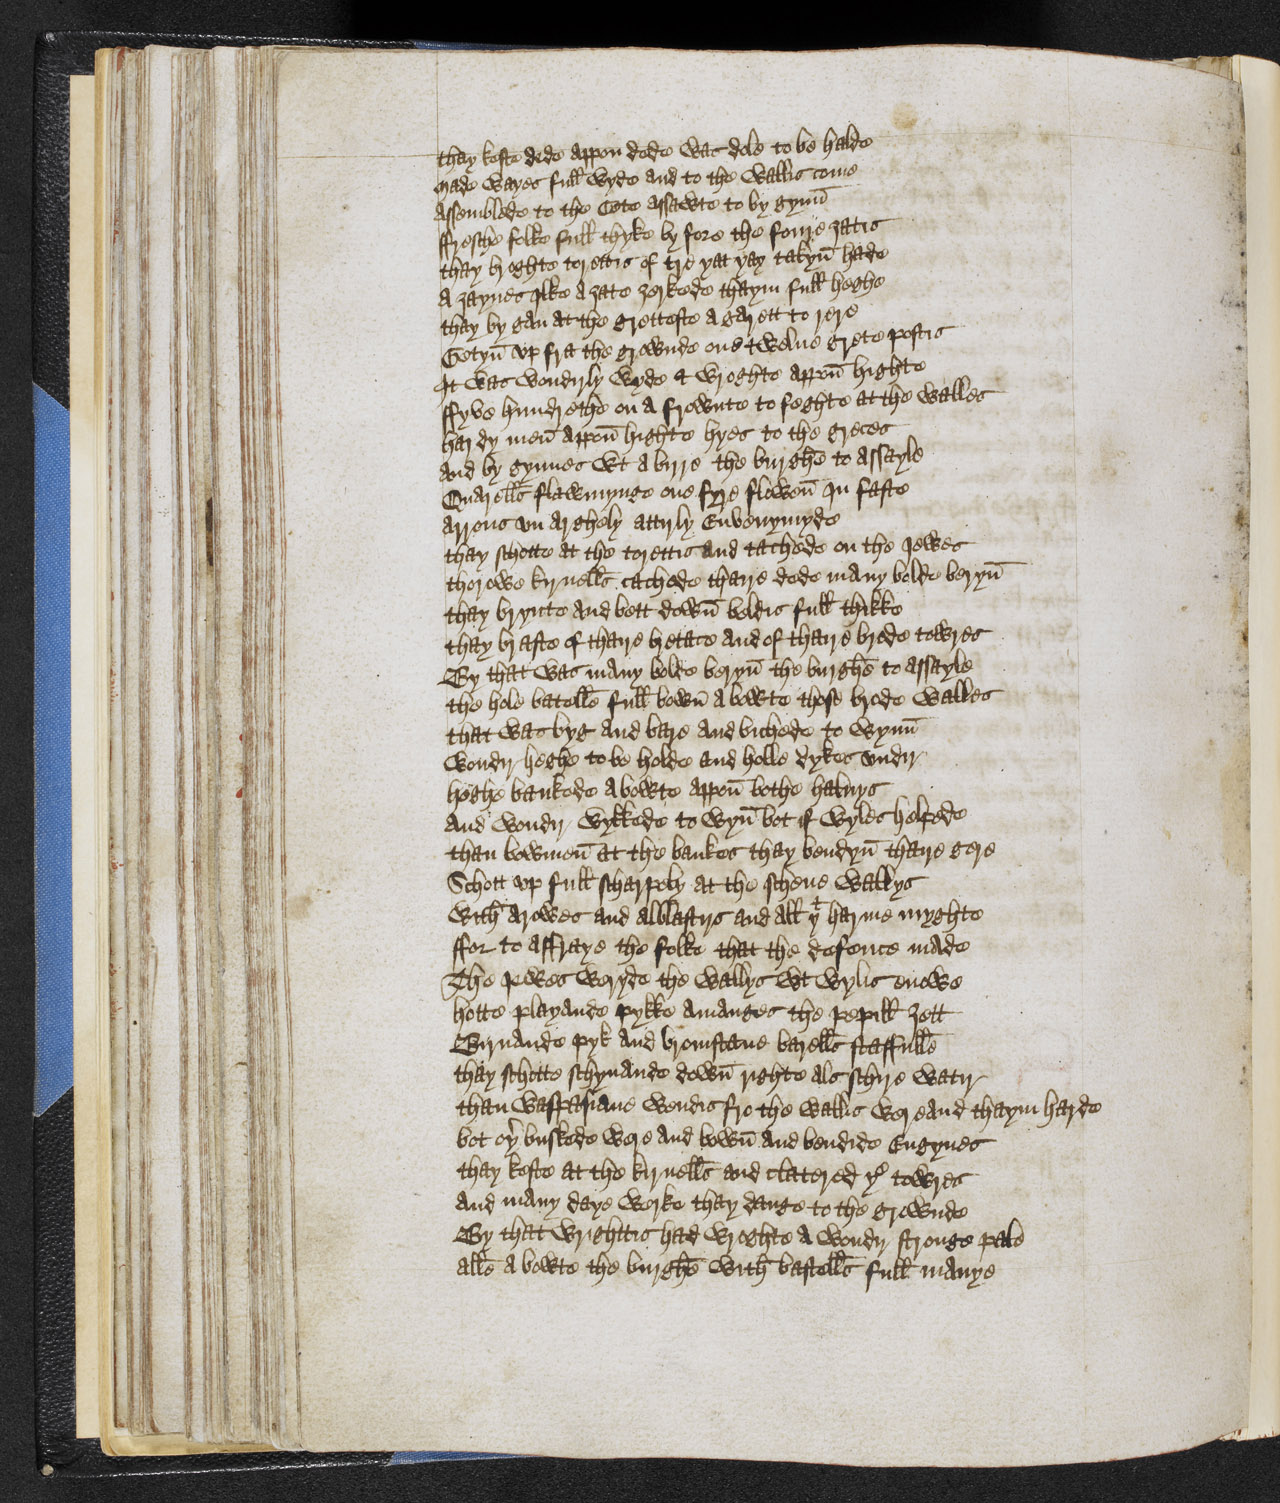 thay keste dede appon dede was dole to be halde
made wayes full wyde and to the wallis come
Assemblede to the Cete assawte to by gynn̄
ffresche folke full thyke by fore the foure ȝatis
thay broghte torettis of tre þat þay takyn̄ hade
A ȝaynes ilke a ȝate ȝerkede thaym full heghe
thay by gan at the gretteste a garett to rere
Getyn̄ vp fra the grownde one twelue grete postis
It was wondirly wyde & wroghte appon̄ highte
ffyve hundrethe on a frownte to feghte at the walles
hardy men̄ appon̄ highte hyes to the greces
And by gynnes wt a birre the burghe to assayle
Quarells flawmynge one fyre flowen̄ In faste
Arrous vn arghely attirly Envenymyde
thay schotte at the torettis and tachede on the Jewes
thorowe kirnells cachede thaire dede many bolde beryn̄
thay brynte and bett down̄ beldis full thikke
thay braste of thaire bretace and of thaire brede towres
By that was many bolde beryn̄ the burghe to assayle
the hole batelle full bown̄ a bowte those brode walles
that was byg and bare and bichede to wynn̄
wondir heghe to be holde and holle dykes vndir
heghe bankede a bowte appon̄ bothe haluys
And wondir wykkede to wyn̄ bot if wyles helpede
than bowmen̄ at the bankes thay bendyn̄ thaire gere
Schott vp full scharpely at the schene wallys
with arowes and alblastirs and all yt harme myghte
ffor to affraye the folke that the defence made
The jewes weryde the wallys wt wylis enowe
hotte playande pykke amanges the pepill ȝett
Birnande pyk and bronstane barells staffulle
thay schotte schynande down̄ righte als schire watir
than waspasiane wendis fro the wallis wereand thaym harde
bot oyr buskede were and bown̄ and bendide Engynes
thay keste at the kirnells and clatered ye towres
And many daye werke thay dange to the grownde
By that wrightis had wroghte a wondir stronge pale
alle a bowte the burghe with bastells full manye